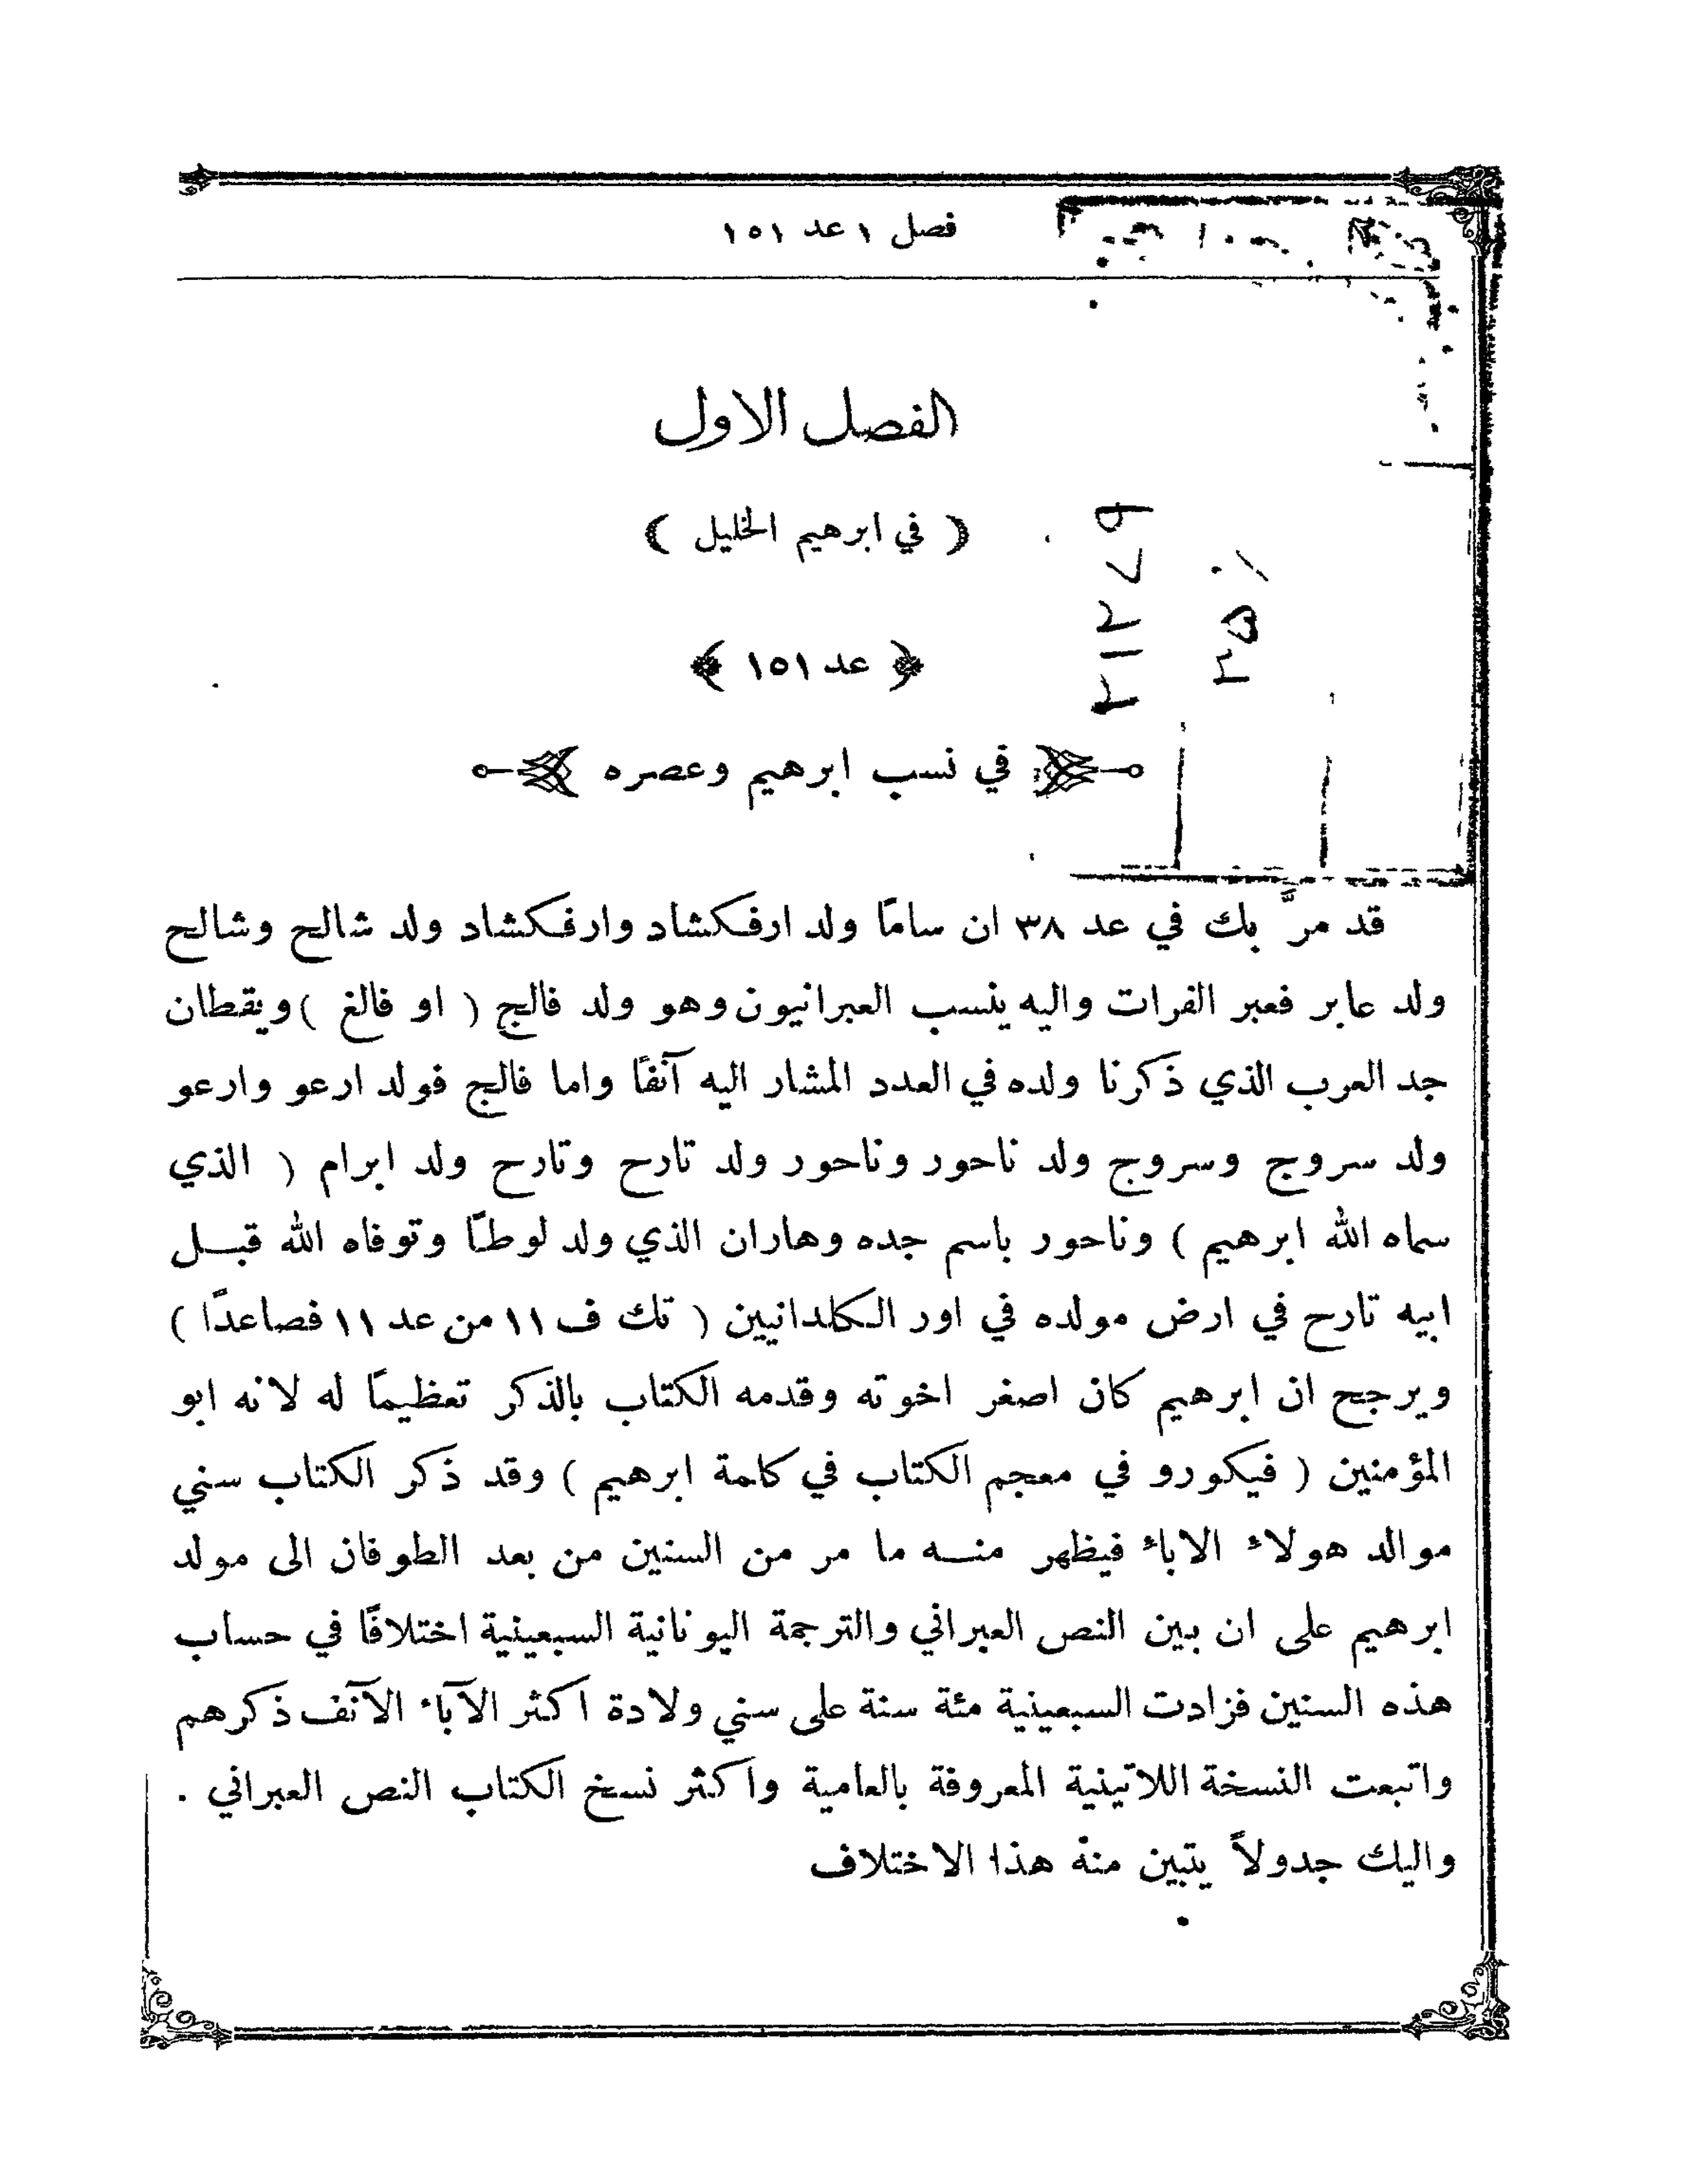 فصل ١ عد ١٥١
الفصل الاول
( في ابرهيم الخليل )
﴿ عد ١٥١ ﴾
في نسب ابرهيم وعصره
قد مرَّ بك في عد ٣٨ ان سامًا ولد ارفكشاد وارفكشاد ولد شالح وشالح
ولد عابر فعبر الفرات واليه ينسب العبرانيون وهو ولد فالج ( او فالغ ) ويقطان
جد العرب الذي ذكرنا ولده في العدد المشار اليه آنفًا واما فالج فولد ارعو وارعو
ولد سروج وسروج ولد ناحور وناحور ولد تارح وتارح ولد ابرام ( الذي
سماه الله ابرهيم ) وناحور باسم جده وهاران الذي ولد لوطًا وتوفاه الله قبـل
ابيه تارح في ارض مولده في اور الكلدانيين ( تك ف ١١ من عد ١١ فصاعدًا )
ويرجح ان ابرهيم كان اصغر اخوته وقدمه الكتاب بالذكر تعظيمًا له لانه ابو
المؤمنين ( فيكورو في معجم الكتاب في كلمة ابرهيم ) وقد ذكر الكتاب سني
موالد هولاء الاباء فيظهر منـه ما مر من السنين من بعد الطوفان الى مولد
ابرهيم على ان بين النص العبراني والترجمة اليونانية السبعينية اختلافًا في حساب
هذه السنين فزادت السبعينية مئة سنة على سني ولادة اكثر الآباء الآنف ذكرهم
واتبعت النسخة اللاتينية المعروفة بالعامية واكثر نسخ الكتاب النص العبراني .
واليك جدولاً يتبين منه هذا الاختلاف